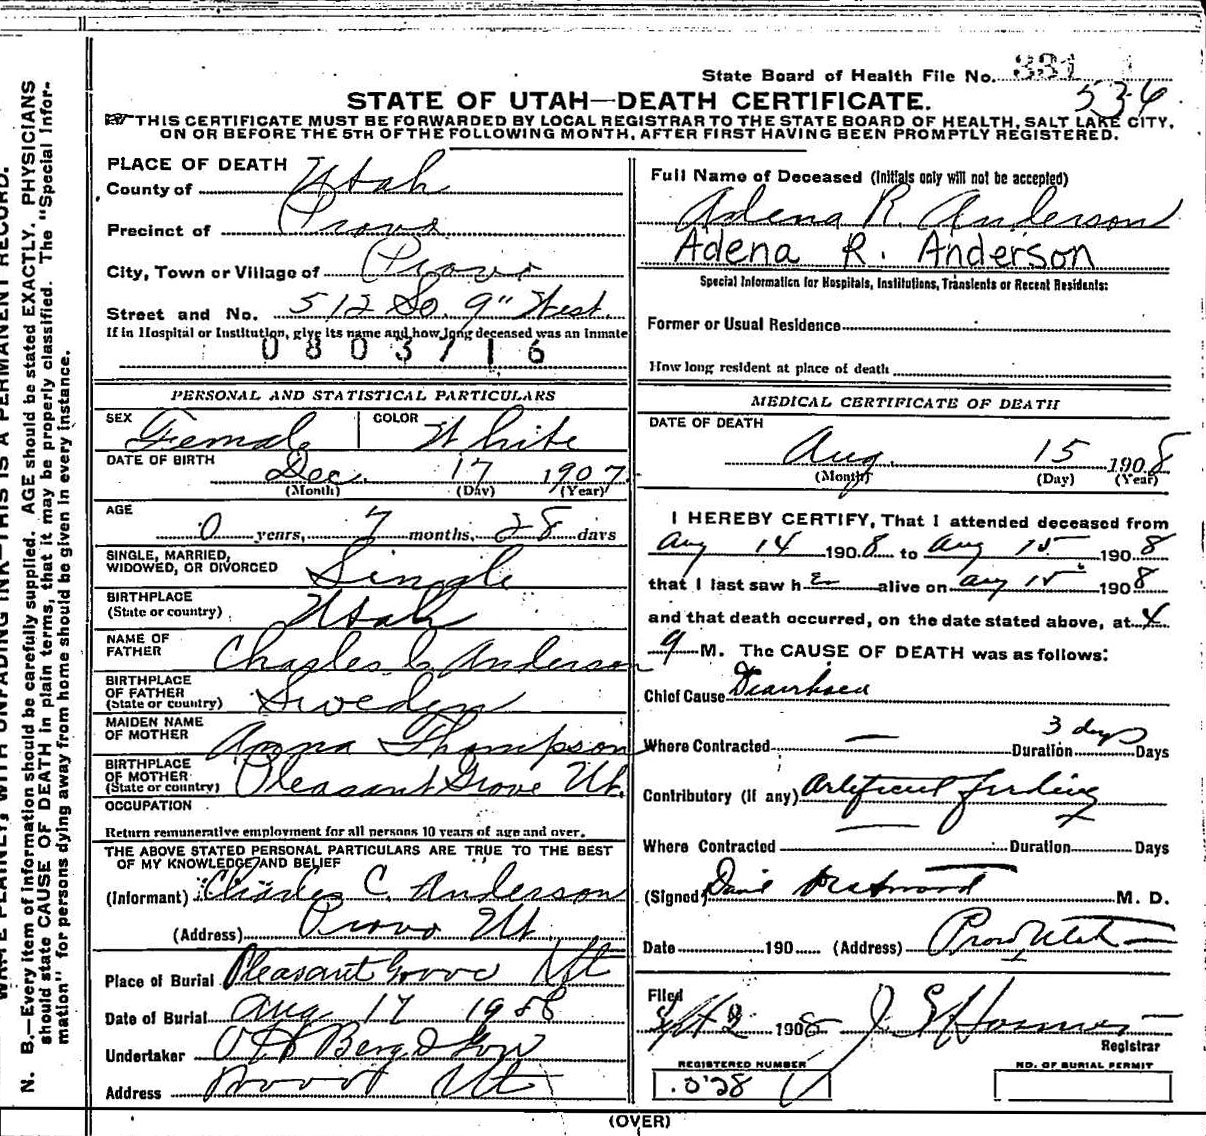 State Board of Health File No. 331
536
STATE OF UTAH—DEATH CERTIFICATE.
THIS CERTIFICATE MUST BE FORWARDED BY LOCAL REGISTRAR TO THE STATE BOARD OF HEALTH, SALT LAKE CITY,
ON OR BEFORE THE 5TH OF THE FOLLOWING MONTH, AFTER FIRST HAVING BEEN PROMPTLY REGISTERED.
PLACE OF DEATH
County of Utah
Precinct of Provo
City, Town or Village of Provo
Street and No. 512 So. 9" West.
If in Hospital or Institution, give its name and how long deceased was an inmate
0803716
PERSONAL AND STATISTICAL PARTICULARS
SEX Female COLOR White
DATE OF BIRTH Dec. 17 1907
(Month) (Day) (Year)
AGE
0 years, 7 months, 28 days
SINGLE, MARRIED,
WIDOWED, OR DIVORCED Single
BIRTHPLACE
(State or country) Utah
NAME OF
FATHER Charles C. Anderson
BIRTHPLACE
OF FATHER
(State or country) Sweden
MAIDEN NAME
OF MOTHER Anna Thompson
BIRTHPLACE
OF MOTHER
(State or country) Pleasant Grove Ut.
OCCUPATION
Return remunerative employment for all persons 10 years of age and over.
THE ABOVE STATED PERSONAL PARTICULARS ARE TRUE TO THE BEST
OF MY KNOWLEDGE AND BELIEF
(Informant) Charles C. Anderson
(Address) Provo Ut.
Place of Burial Pleasant Grove Ut
Date of Burial Aug 17 1908
Undertaker Berg & Son
Address Provo Ut
Full Name of Deceased (Initials only will not be accepted)
Adena R. Anderson
Adena R. Anderson
Special Information for Hospitals, Institutions, Transients or Recent Residents:
Former or Usual Residence
How long resident at place of death
MEDICAL CERTIFICATE OF DEATH
DATE OF DEATH
Aug. 15 1908
(Month) (Day) (Year)
I HEREBY CERTIFY, That I attended deceased from
Aug 14 1908 to Aug 15 1908
that I last saw her alive on Aug 15 1908
and that death occurred, on the date stated above, at 4
M. The CAUSE OF DEATH was as follows:
Chief Cause Diarrhoea
3 days
Where Contracted — Duration Days
Contributory (if any) Artificial feeding
Where Contracted — Duration Days
(Signed) M. D.
Date 190 (Address) Provo Utah
Filed
Sept 2 1908 J. Registrar
REGISTERED NUMBER NO. OF BURIAL PERMIT
(OVER)
N. B.—Every item of information should be carefully supplied. AGE should be stated EXACTLY. PHYSICIANS
should state CAUSE OF DEATH in plain terms, that it may be properly classified. The "Special Infor-
mation" for persons dying away from home should be given in every instance.